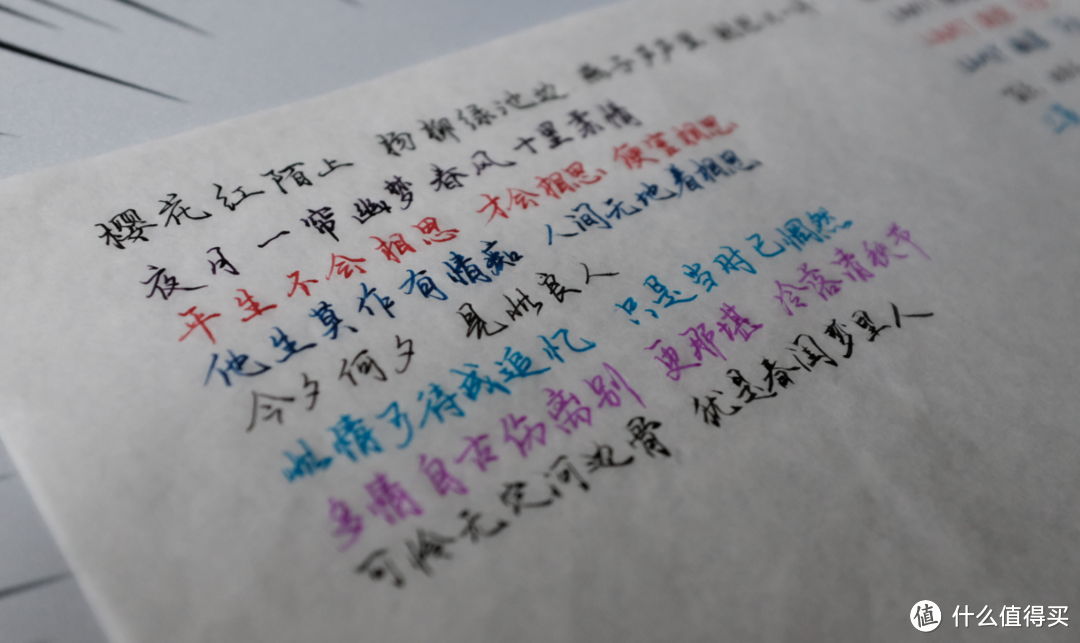 樱花红陌上 杨柳绿池边 燕子声声里 相思
夜月一帘幽梦春风十里柔情
平生不会相思 才会相思 便害相思
他生莫作有情痴 人间无地着相思
今夕何夕 见此良人
此情可待成追忆 只是当时已惘然
多情自古伤离别 更那堪 冷落清秋节
可怜无定河边骨 犹是春闺梦里人
值 什么值得买